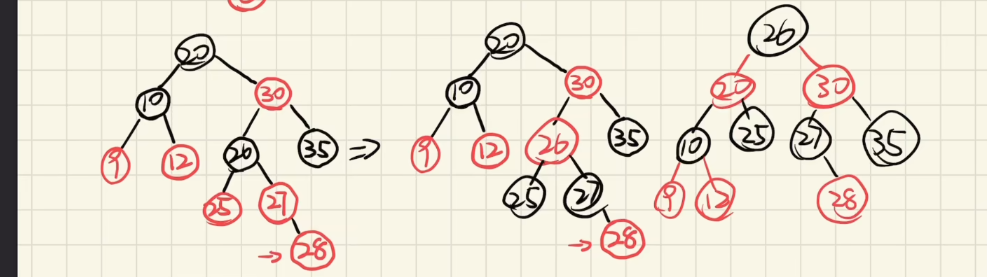 20
10 30
9 12 26 35 ⇒
25 27
→ 28
20
10 30
9 12 26 35
25 27
→ 28
26
20 30
10 25 27 35
9 12 28